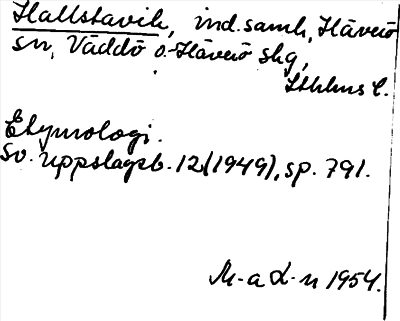 Hallstavik, ind.samh., Häverö
sn, Väddö o. Häverö skg,
Sthlms l.
Etymologi.
Sv. uppslagsb. 12(1949), sp. 791.
M-a L-n 1954.